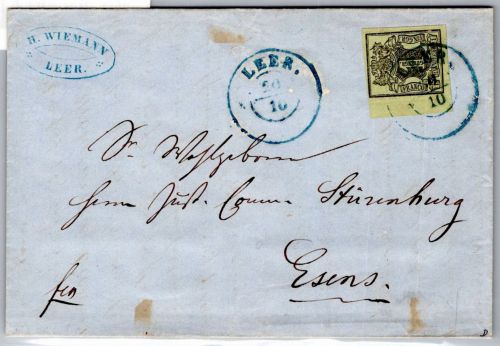 H. WIEMANN
LEER.
LEER.
20
10
10
Sr Wohlgeborn
Herrn Just. Comm. Stürenburg
Esens.